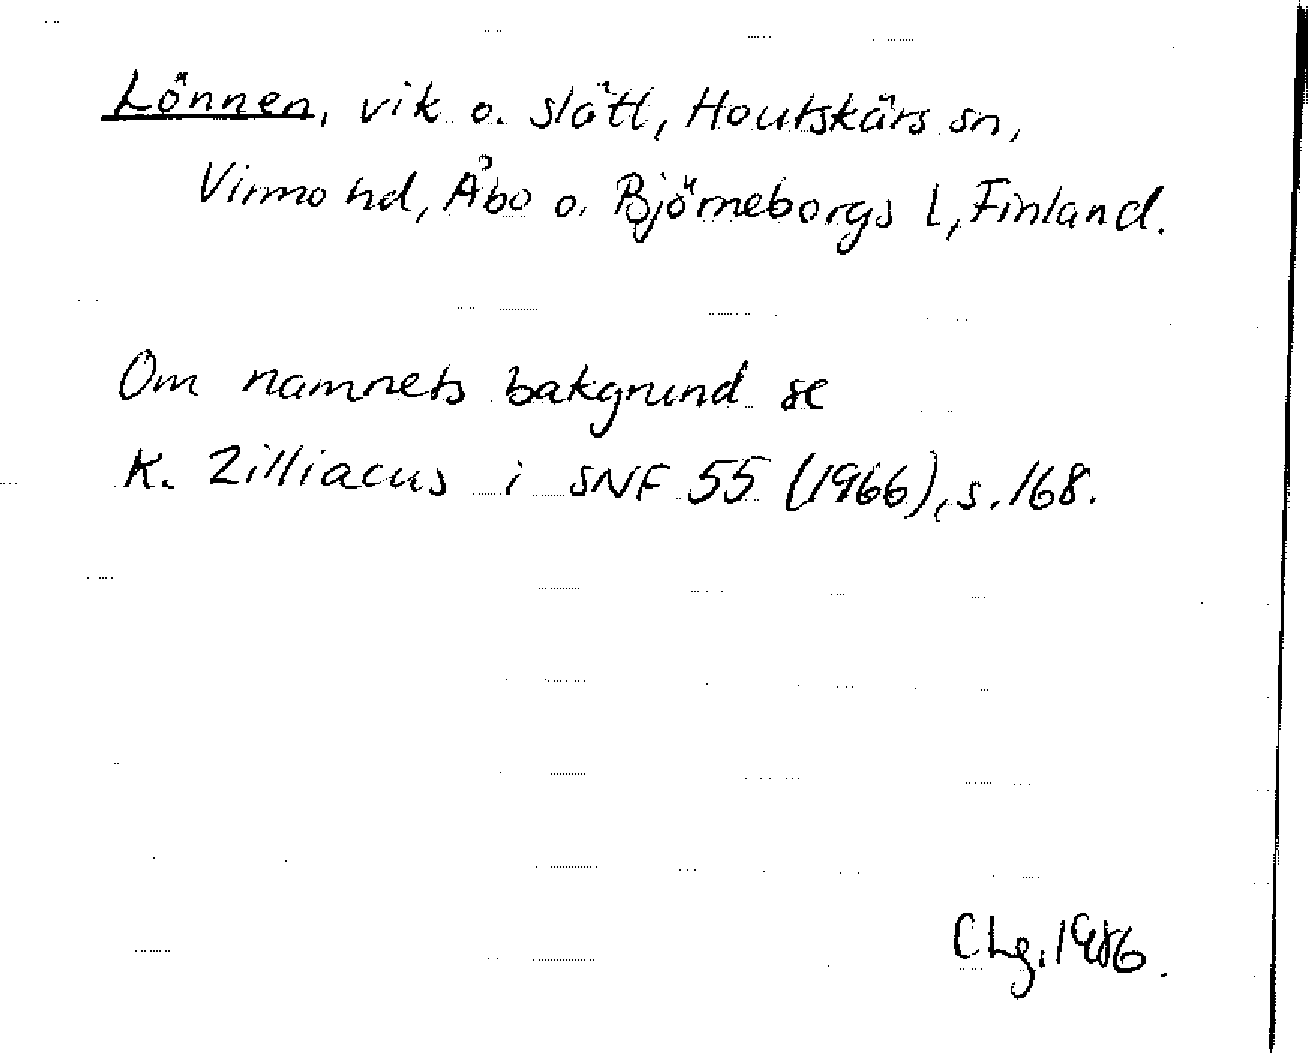 Lönnen, vik o. slätl, Houtskärs sn,
Virmo hd, Åbo o. Björneborgs l, Finland.
Om namnets bakgrund se
K. Zilliacus i SNF 55 (1966), s. 168.
Chg. 1986.